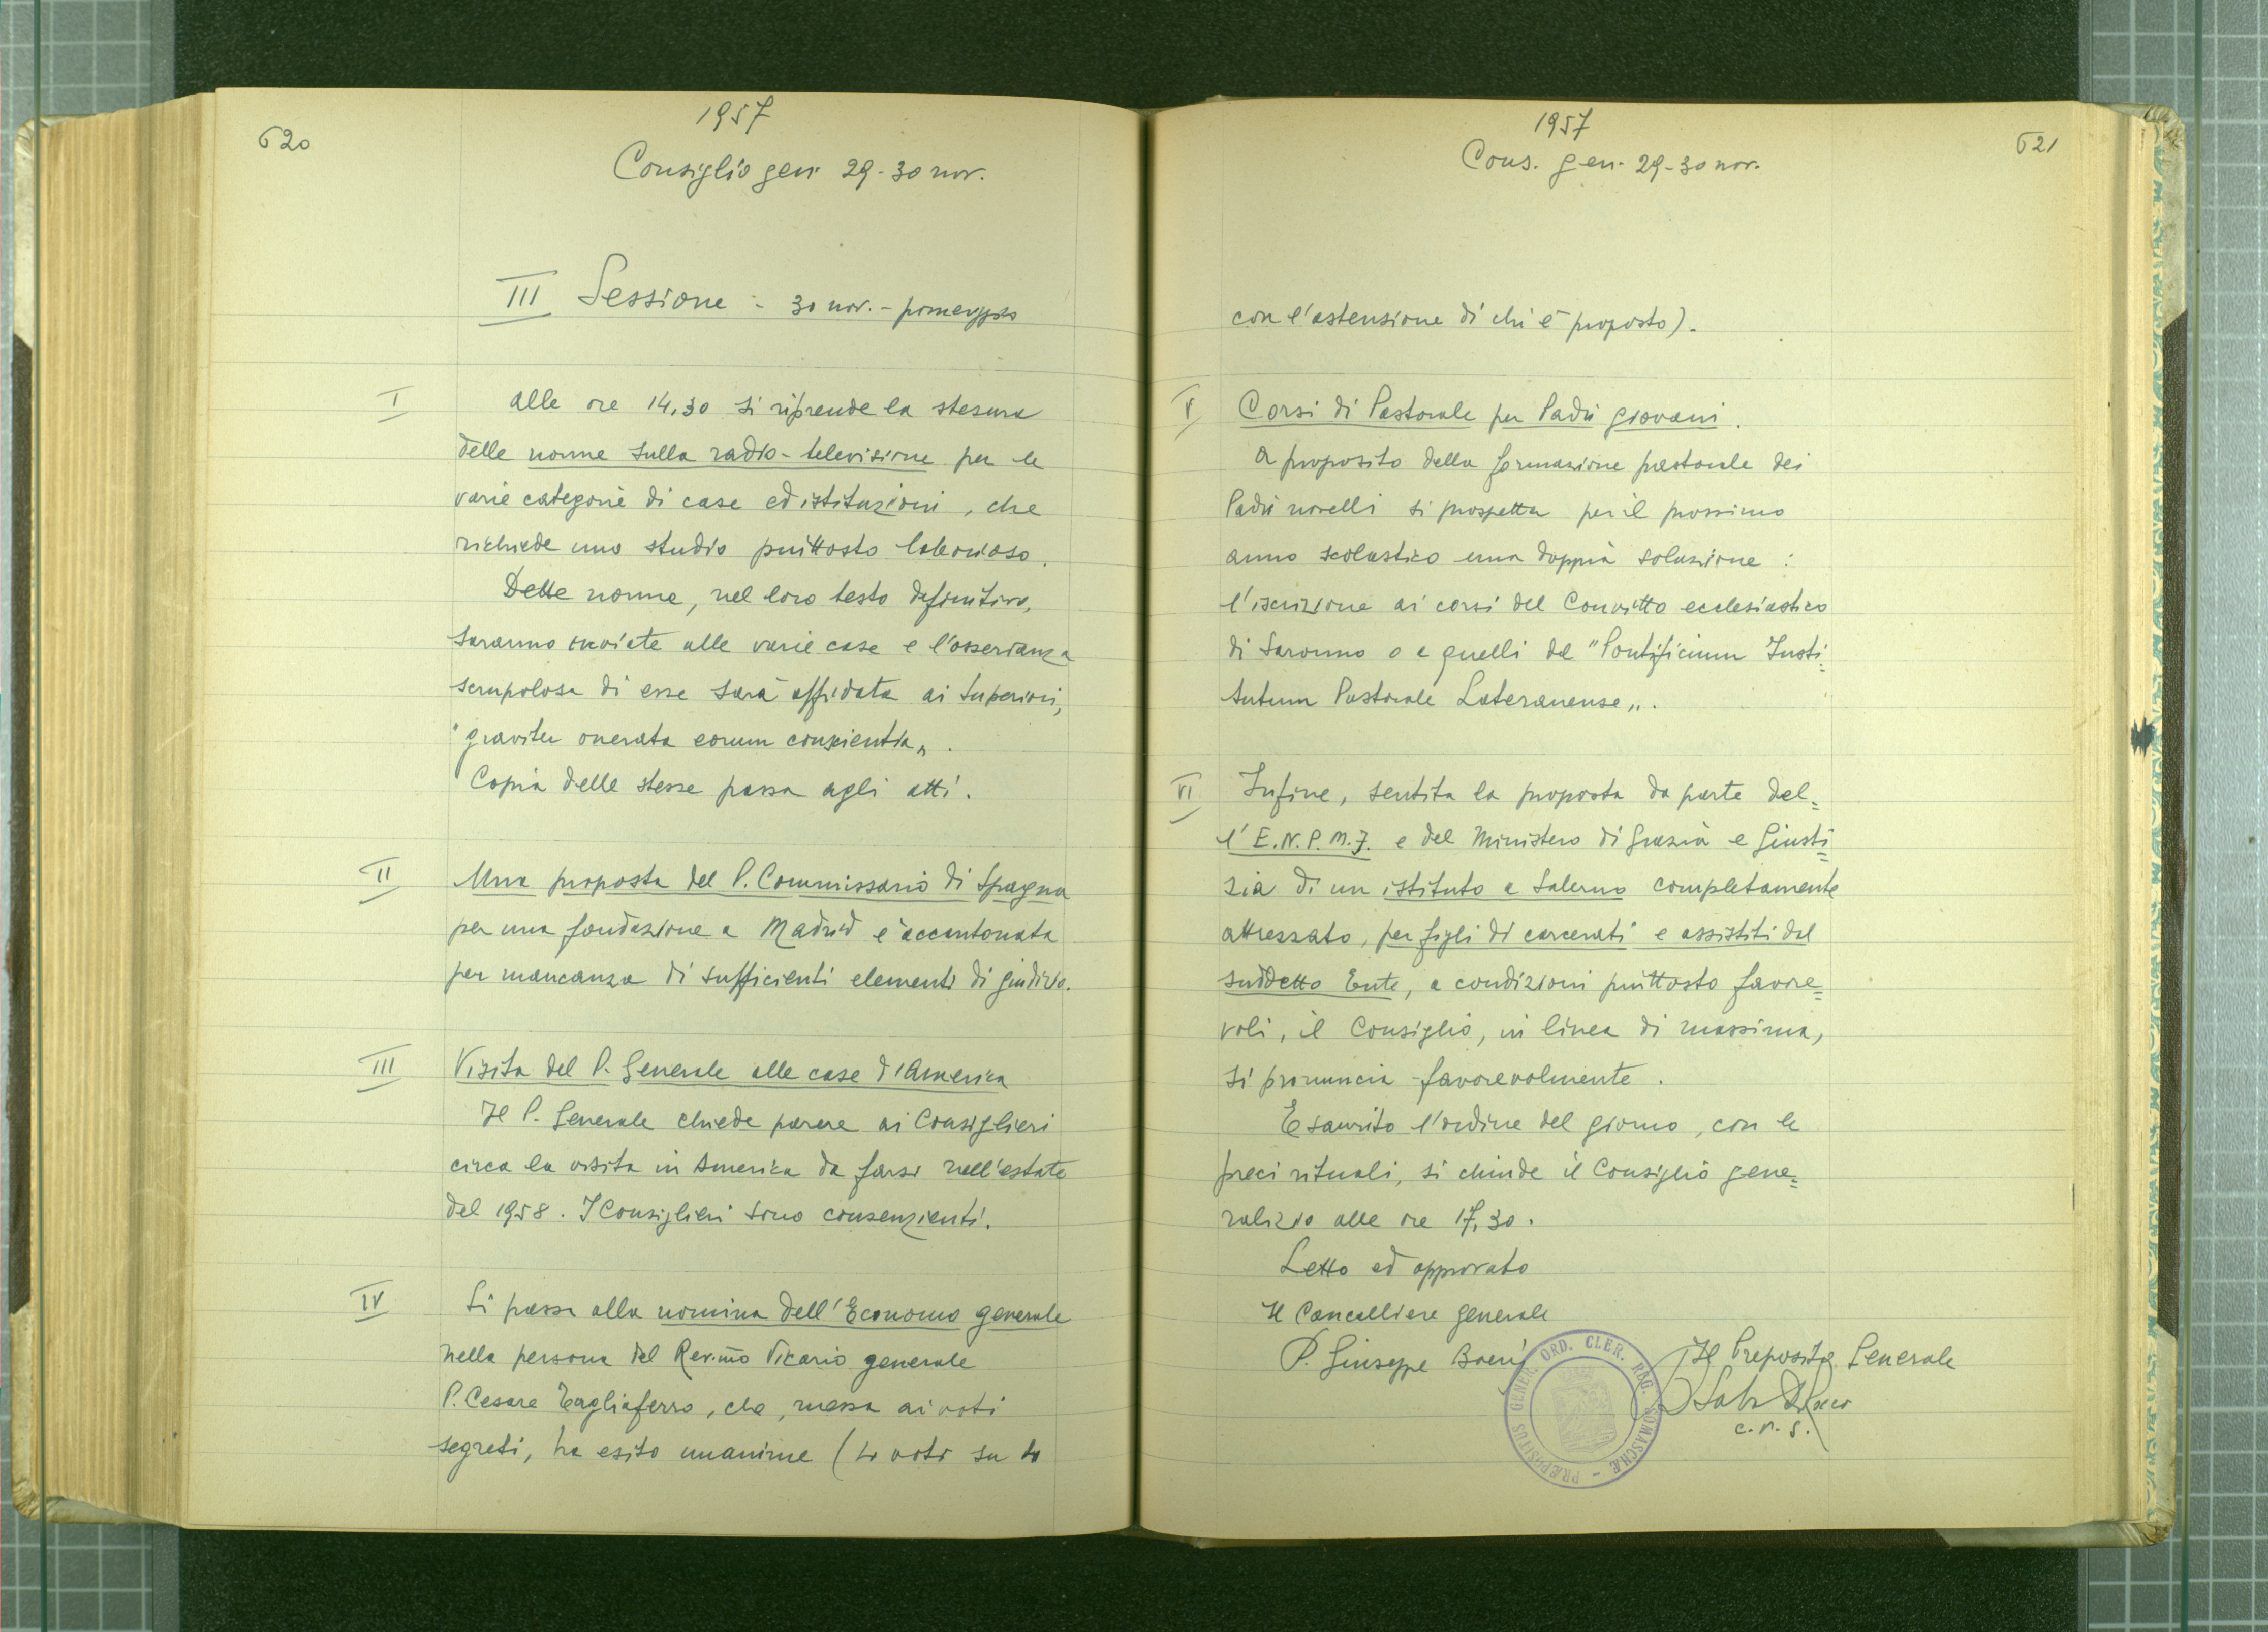 620
1957
Consiglio gen. 29-30 nov.
III Sessione - 30 nov. - pomeriggio
I
alle ore 14,30 si riprende la stesura
delle norme sulla radio-televisione per le
varie categorie di case ed istituzioni, che
richiede uno studio piuttosto laborioso.
Dette norme, nel loro testo definitivo,
saranno inviate alle varie case e l'osservanza
scrupolosa di esse sarà affidata ai Superiori,
"graviter onerata eorum conscientia".
Copia delle stesse passa agli atti.
II
Una proposta del P. Commissario di Spagna
per una fondazione a Madrid è accantonata
per mancanza di sufficienti elementi di giudizio.
III
Visita del P. Generale alle case d'America
Il P. Generale chiede parere ai Consiglieri
circa la visita in America da farsi nell'estate
del 1958. I Consiglieri sono consenzienti.
IV
Si passa alla nomina dell'Economo generale
nella persona del Rev.mo Vicario generale
P. Cesare Tagliaferro, che, messa ai voti
segreti, ha esito unanime (4 voti su 4
1957
Cons. gen. 29-30 nov.
621
con l'astensione di chi è proposto).
V
Corsi di Pastorale per Padri giovani.
A proposito della formazione pastorale dei
Padri novelli si prospetta per il prossimo
anno scolastico una doppia soluzione:
l'iscrizione ai corsi del Convitto ecclesiastico
di Saronno o a quelli del "Pontificium Insti=
tutum Pastorale Lateranense".
VI
Infine, sentita la proposta da parte del=
l'E.N.P.M.F. e del Ministero di Grazia e Giusti=
zia di un istituto a Salerno completamente
attrezzato, per figli di carcerati e assistiti dal
suddetto Ente, a condizioni piuttosto favore=
voli, il Consiglio, in linea di massima,
si pronuncia favorevolmente.
Esaurito l'ordine del giorno, con le
preci rituali, si chiude il Consiglio gene=
ralizio alle ore 17,30.
Letto ed approvato
Il Cancelliere generale
P. Giuseppe Boeris
Il Preposito Generale
c.r.s.
PRÆPOSITUS GENER. ORD. CLER. REG. SOMASCHÆ